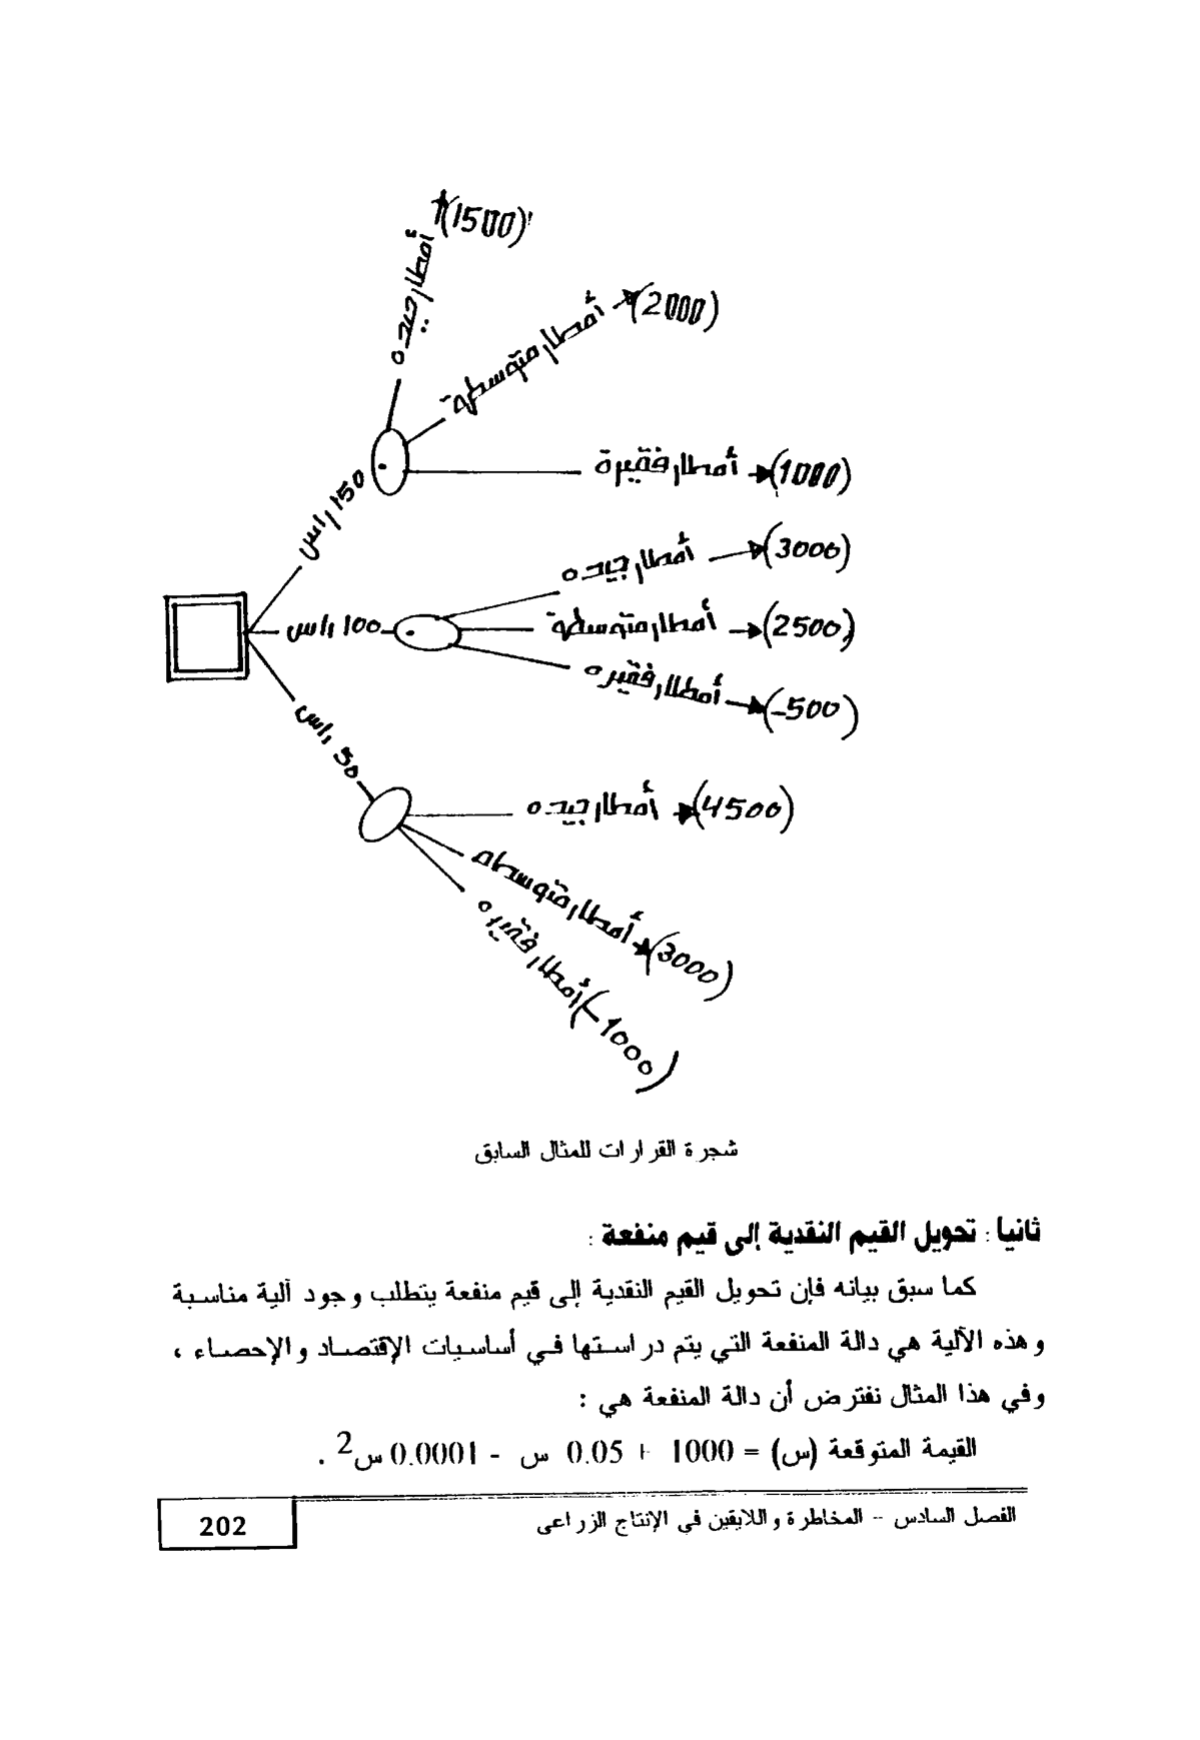 أمطار جيده (1500)
أمطار متوسطة (2000)
أمطار فقيرة (1000)
150 راس
أمطار جيده (3000)
100 راس
أمطار متوسطة (2500)
أمطار فقيره (-500)
50 راس
أمطار جيده (4500)
أمطار متوسطه (3000)
أمطار فقيره (-1000)
شجرة القرارات للمثال السابق
ثانيا : تحويل القيم النقدية إلى قيم منفعة :
كما سبق بيانه فإن تحويل القيم النقدية إلى قيم منفعة يتطلب وجود آلية مناسبة
وهذه الآلية هي دالة المنفعة التي يتم دراستها في أساسيات الإقتصاد والإحصاء ،
وفي هذا المثال نفترض أن دالة المنفعة هي :
القيمة المتوقعة (س) = 1000 + 0.05 س - 0.0001 س2 .
الفصل السادس - المخاطرة واللايقين في الإنتاج الزراعى
202